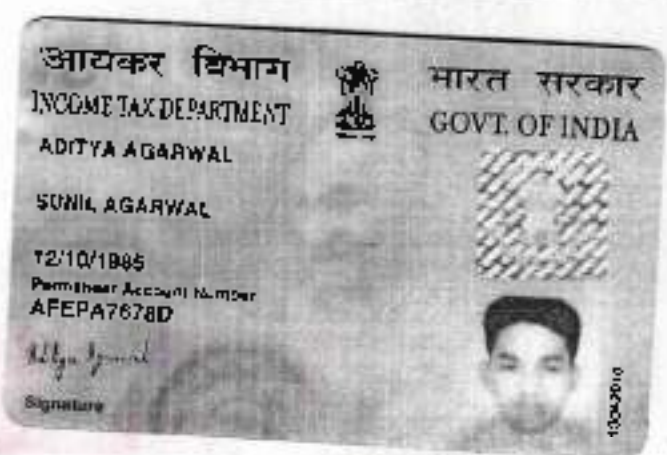 आयकर विभाग
INCOME TAX DEPARTMENT
भारत सरकार
GOVT. OF INDIA
ADITYA AGARWAL
SUNIL AGARWAL
12/10/1985
Permanent Account Number
AFEPA7678D
Signature